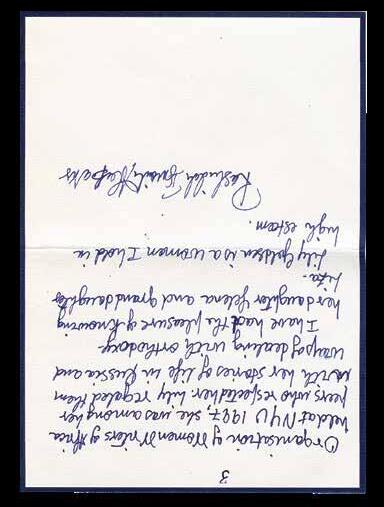 3
Organisation of Women Writers of Africa
held at NYU 1997, she was among her
peers who respected her. Lily regaled them
with her stories of life in Russia and
ways of dealing with orthodoxy.
I have had the pleasure of knowing
her daughter Yelena and granddaughter
Lily Golden is a women I hold in
high esteem.
Rashidah Ismaili